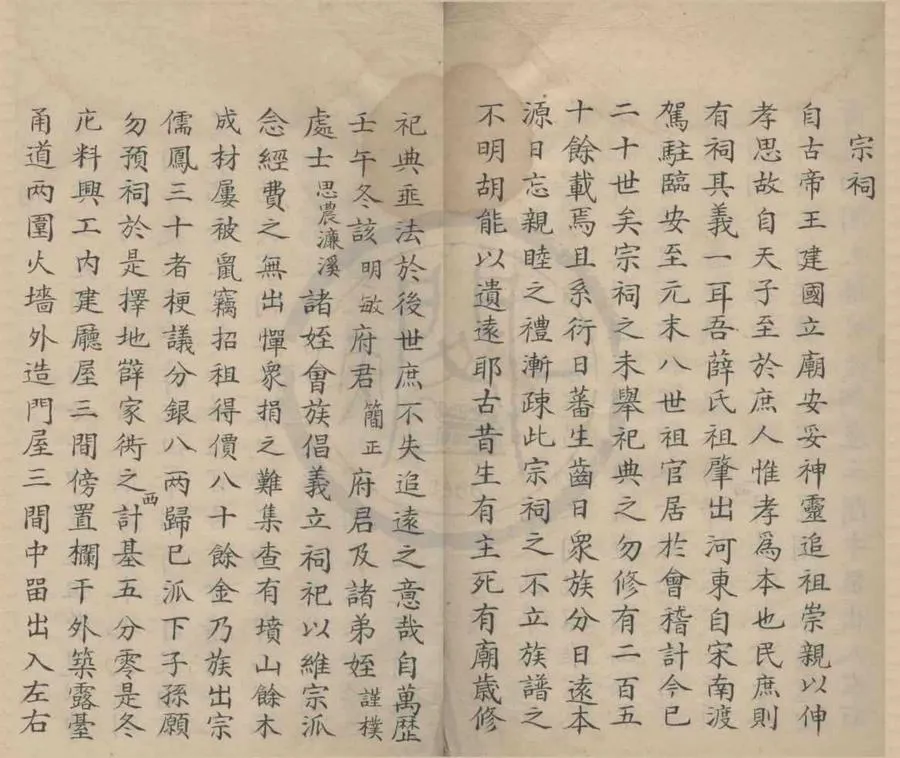 宗祠
自古帝王建國立廟安妥神靈追祖崇親以伸
孝思故自天子至於庶人惟孝為本也民庶則
有祠其義一耳吾薛氏祖肇出河東自宋南渡
駕駐臨安至元末八世祖官居於會稽計今已
二十世矣宗祠之未舉祀典之勿修有二百五
十餘載焉且系衍日蕃生齒日衆族分日遠本
源日忘親睦之禮漸疎此宗祠之不立族譜之
不明胡能以遺遠耶古昔生有主死有廟歲修
祀典垂法於後世庶不失追遠之意哉自萬歷
壬午冬該明敏府君簡正府君及諸弟姪謹樸
處士思農濂溪諸姪會族倡義立祠祀以維宗派
念經費之無出憚衆捐之難集查有墳山餘木
成材屢被鼠竊招祖得價八十餘金乃族出宗
儒鳳三十者梗議分銀八兩歸已派下子孫願
勿預祠於是擇地薛家衖之西計基五分零是冬
庀料興工内建廳屋三間傍置欄干外築露臺
甬道两圍火墻外造門屋三間中畱出入左右